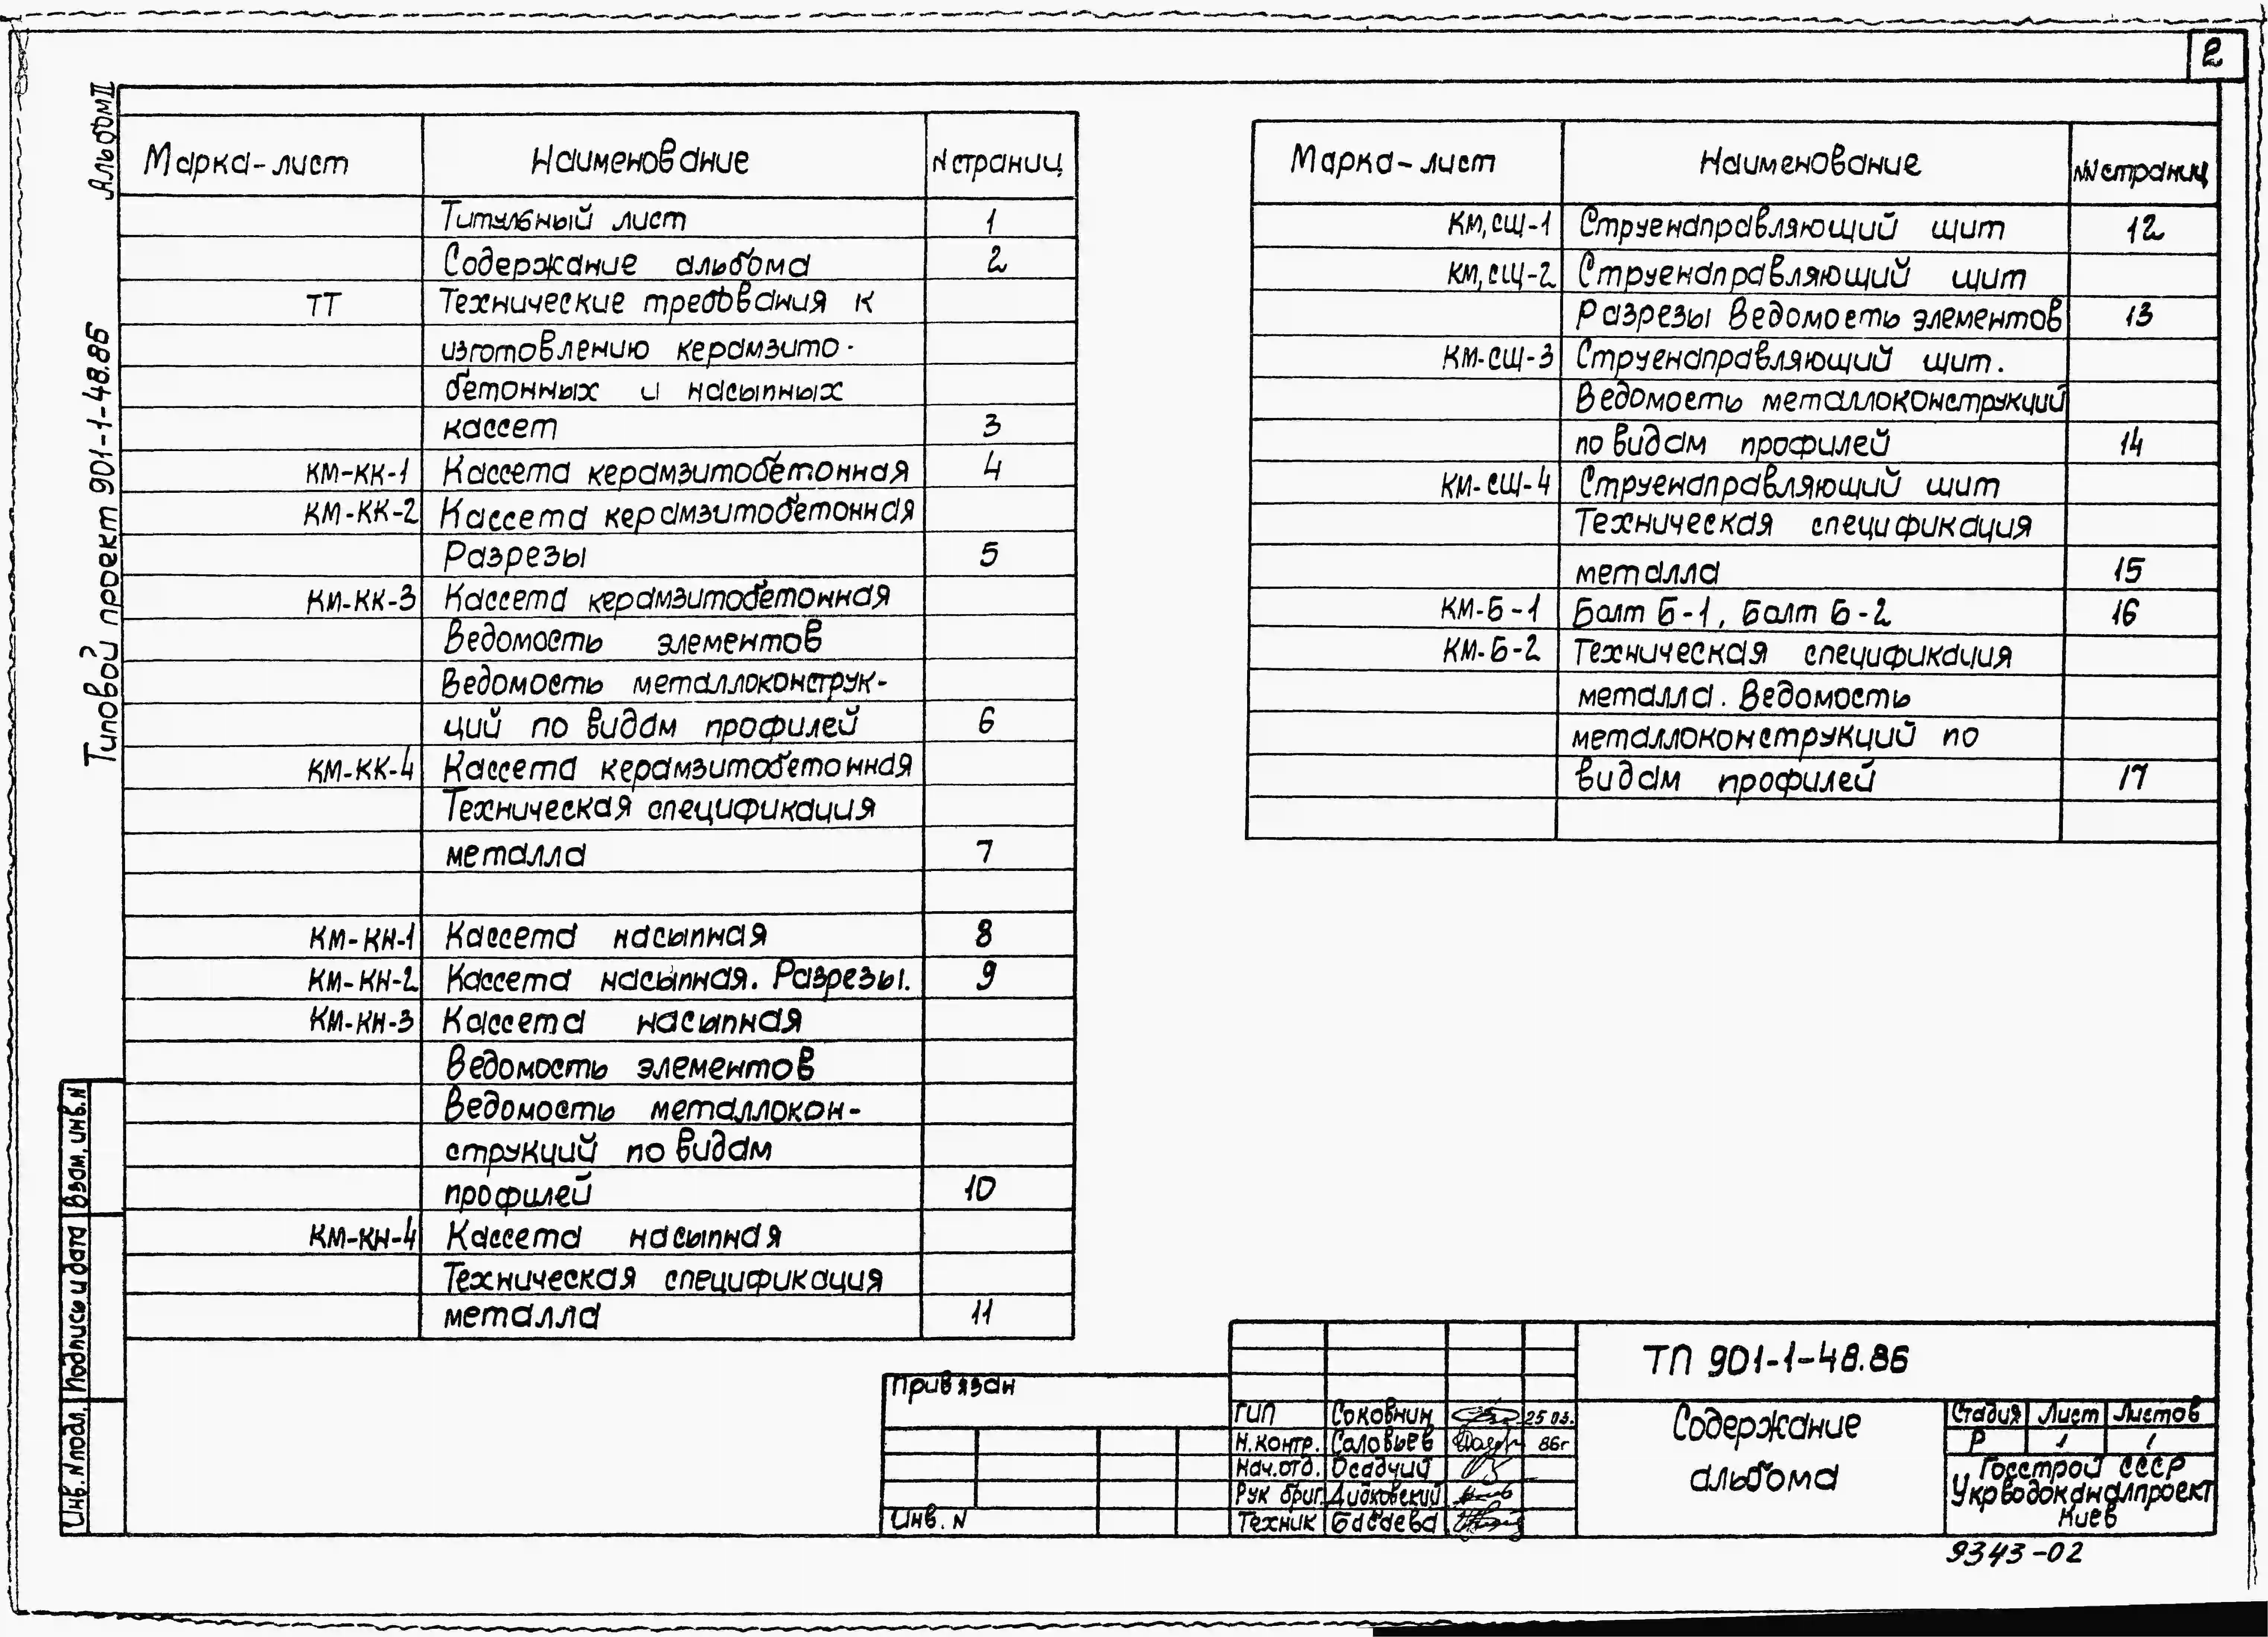 2
Альбом II
Типовой проект 901-1-48.86
Марка-лист Наименование N страниц
Титульный лист 1
Содержание альбома 2
ТТ Технические требования к
изготовлению керамзито-
бетонных и насыпных
кассет 3
КМ-КК-1 Кассета керамзитобетонная 4
КМ-КК-2 Кассета керамзитобетонная
Разрезы 5
КМ-КК-3 Кассета керамзитобетонная
Ведомость элементов
Ведомость металлоконструк-
ций по видам профилей 6
КМ-КК-4 Кассета керамзитобетонная
Техническая спецификация
металла 7
КМ-КН-1 Кассета насыпная 8
КМ-КН-2 Кассета насыпная. Разрезы. 9
КМ-КН-3 Кассета насыпная
Ведомость элементов
Ведомость металлокон-
струкций по видам
профилей 10
КМ-КН-4 Кассета насыпная
Техническая спецификация
металла 11
Марка-лист Наименование NN страниц
КМ,СЩ-1 Струенаправляющий щит 12
КМ,СЩ-2 Струенаправляющий щит
Разрезы Ведомость элементов 13
КМ-СЩ-3 Струенаправляющий щит.
Ведомость металлоконструкций
по видам профилей 14
КМ-СЩ-4 Струенаправляющий щит
Техническая спецификация
металла 15
КМ-Б-1 Балт Б-1, Балт Б-2 16
КМ-Б-2 Техническая спецификация
металла. Ведомость
металлоконструкций по
видам профилей 17
Инв. N подл. Подпись и дата Взам. инв. N
Привязан
Инв. N
ГИП Соковнин 25.03.
Н.контр. Соловьев 86г
Нач.отд. Осадчий
Рук бриг Дидковский
Техник Басаева
ТП 901-1-48.86
Содержание
альбома
Стадия Лист Листов
Р 1 1
Госстрой СССР
Укрводоканалпроект
Киев
9343-02